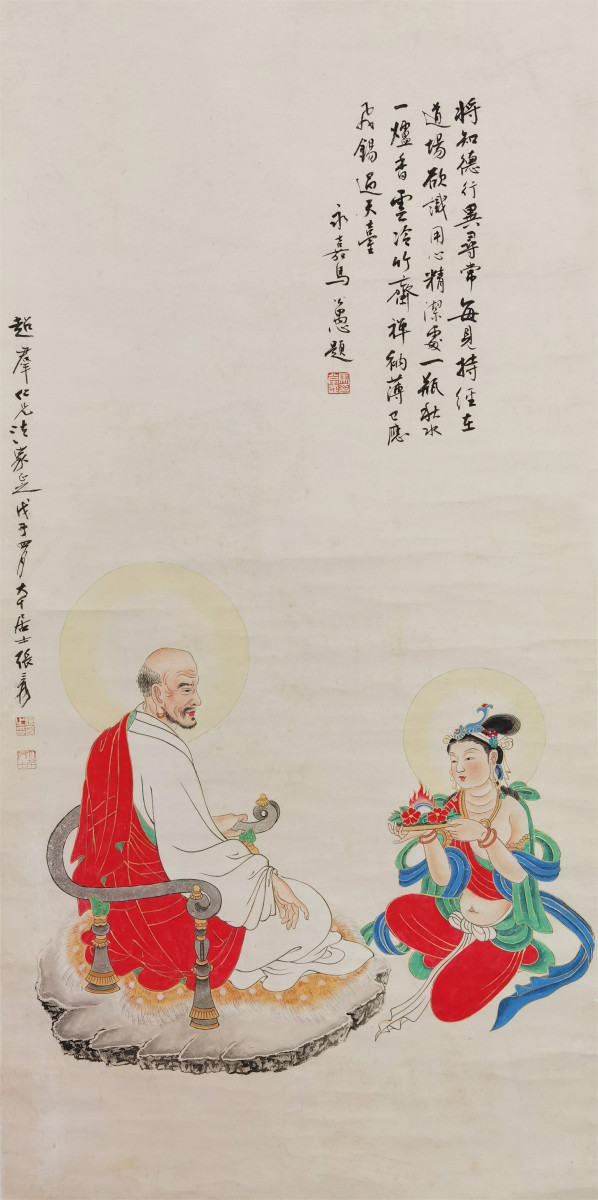 將知德行異尋常每見持經在
道場欲識用心精潔處一瓶秋水
一爐香雲冷竹齋禪衲薄已應
飛錫過天臺
永嘉馬 題
超群仁兄法家正之戊子四月大千居士張爰